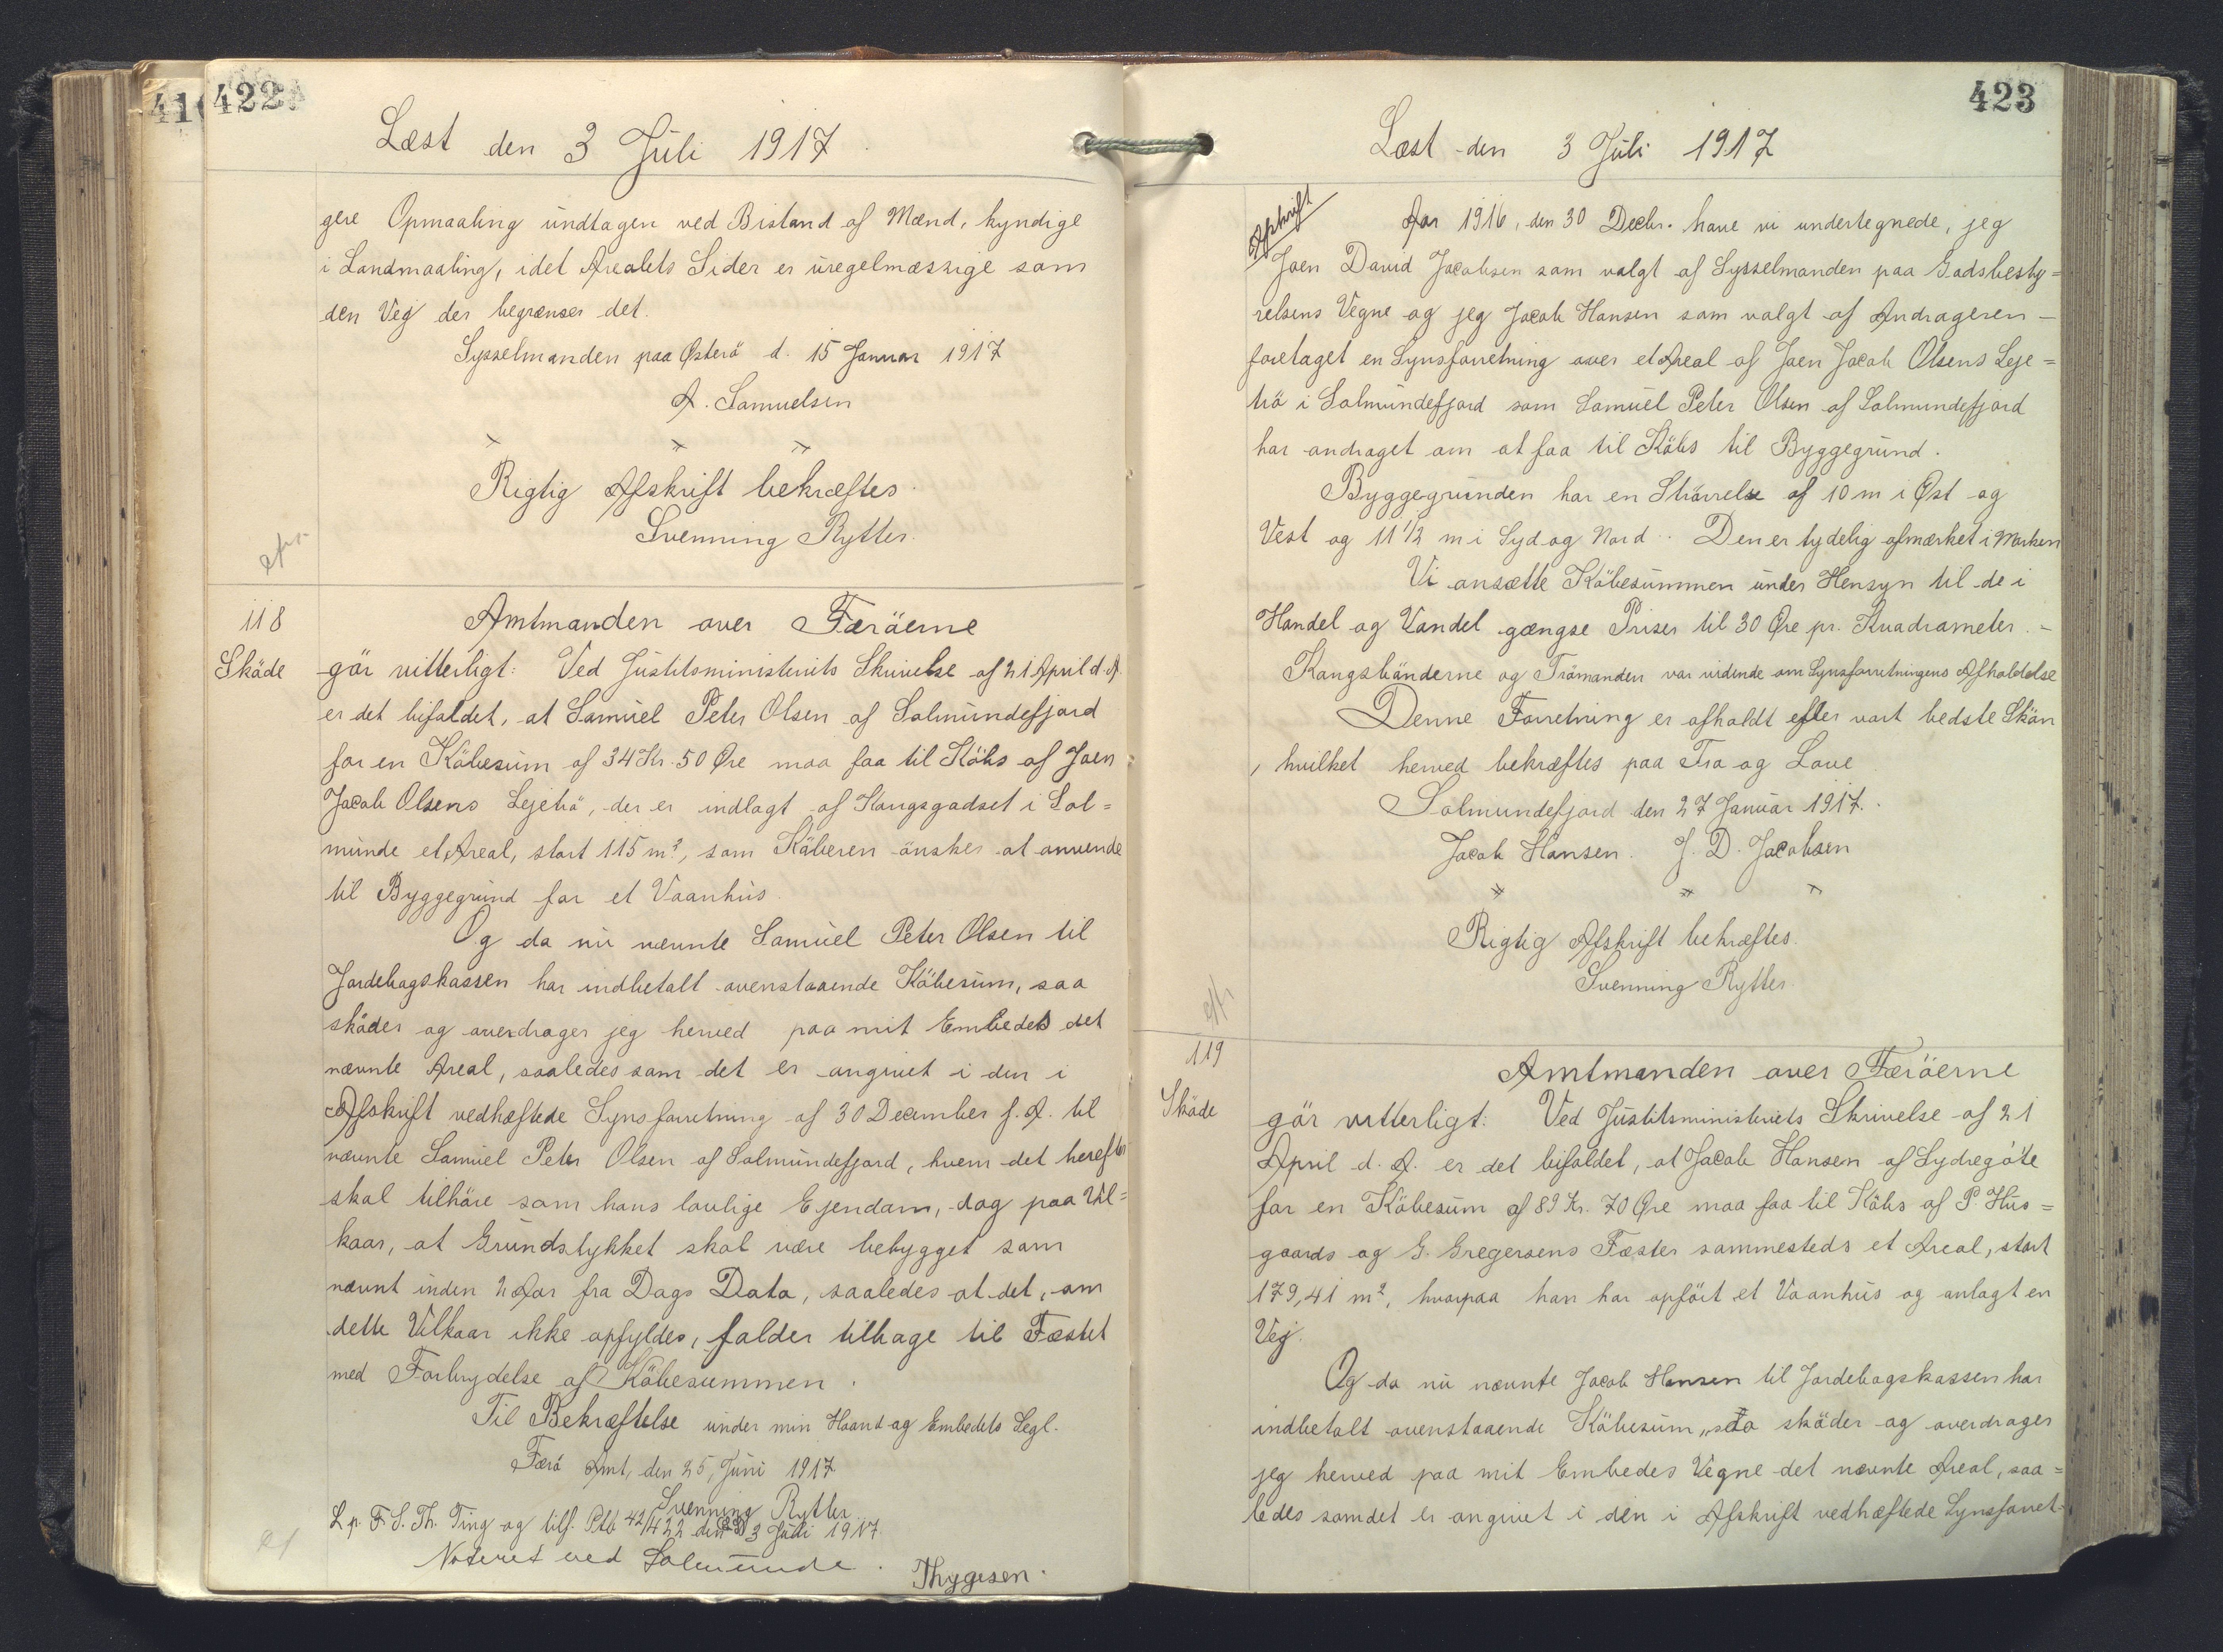 41
422
Læst den 3 Juli 1917.
gere Opmaaling undtagen ved Bistand af Mænd, kyndige
i Landmaaling, idet Arealets Sider er uregelmæssige som
den Vej der begrænser det.
Sysselmanden paa Østerö d. 15 Januar 1917
A. Samuelsen
Rigtig Afskrift bekræftes.
Svenning Rytter.
118
Sköde
Amtmanden over Færöerne
gör vitterligt: Ved Justitsministeriets Skrivelse af 21 April d. A.
er det bifaldet, at Samuel Peter Olsen af Solmundefjord
for en Köbesum af 34 Kr. 50 Øre maa faa til Köbs af Joen
Jacob Olsens Lejetrö, der er indlagt af Kongsgodset i Sol=
munde et Areal, stort 115 m², som Köberen önsker at anvende
til Byggegrund for et Vaanhus.
Og da nu nævnte Samuel Peter Olsen til
Jordebogskassen har indbetalt ovenstaaende Köbesum, saa
sköder og overdrager jeg herved paa mit Embedes det
nævnte Areal, saaledes som det er angivet i den i
Afskrift vedhæftede Synsforretning af 30 December f. A. til
nævnte Samuel Peter Olsen af Solmundefjord, hvem det herefter
skal tilhöre som hans lovlige Ejendom, dog paa Vil=
kaar, at Grundstykket skal være bebygget som
nævnt inden 2 Aar fra Dags Dato, saaledes at det, om
dette Vilkaar ikke opfyldes, falder tilbage til Fæstet
med Forbrydelse af Köbesummen.
Til Bekræftelse under min Haand og Embedets Segl.
Færö Amt, den 25, Juni 1917
Svenning Rytter
L. p. F. S. Th. Ting og tilf. Ptb 42/422 den 3 Juli 1917.
Noteret ved Solmunde.
Thygesen.
423
Læst den 3 Juli 1917
Afskrift
Aar 1916, den 30 Decbr. have vi undertegnede, jeg
Joen David Jacobsen som valgt af Sysselmanden paa Godsbesty=
relsens Vegne og jeg Jacob Hansen som valgt af Andrageren -
foretaget en Synsforretning over et Areal af Joen Jacob Olsens Leje=
trö i Solmundefjord som Samuel Peter Olsen af Solmundefjord
har andraget om at faa til Köbs til Byggegrund.
Byggegrunden har en Störrelse af 10 m i Øst og
Vest og 11 1/2 m i Syd og Nord. Den er tydelig afmærket i Marken
Vi ansætte Köbesummen under Hensyn til de i
Handel og Vandel gængse Priser til 30 Øre pr. Kvadrameter. -
Kongsbönderne og Trömanden var vidende om Synsforretningens Afholdelse
Denne Forretning er afholdt efter vort bedste Skön
, hvilket herved bekræftes paa Tro og Love
Solmundefjord den 27 Januar 1917.
Jacob Hansen. J. D. Jacobsen
Rigtig Afskrift bekræftes.
Svenning Rytter.
119
Sköde
Amtmanden over Færöerne
gör vitterligt: Ved Justitsministeriets Skrivelse af 21
April d. A. er det bifaldet, at Jacob Hansen af Sydregöte
for en Köbesum af 89 Kr. 70 Øre maa faa til Köbs af P. Hus=
gaards og G. Gregersens Fæster sammesteds et Areal, stort
179,41 m², hvorpaa han har opfört et Vaanhus og anlagt en
Vej.
Og da nu nævnte Jacob Hansen til Jordebogskassen har
indbetalt ovenstaaende Köbesum, saa sköder og overdrager
jeg herved paa mit Embedes Vegne det nævnte Areal, saa=
ledes som det er angivet i den i Afskrift vedhæftede Synsforret-